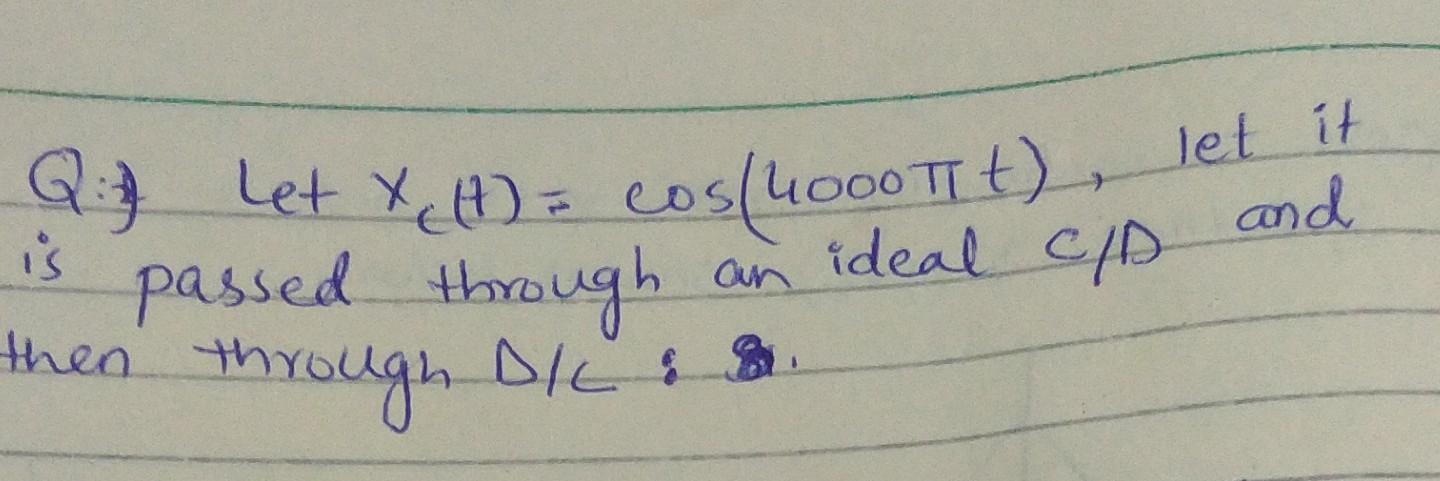 Q:→ Let x_c(t) = cos(4000πt), let it
is passed through an ideal C/D and
then through D/C :